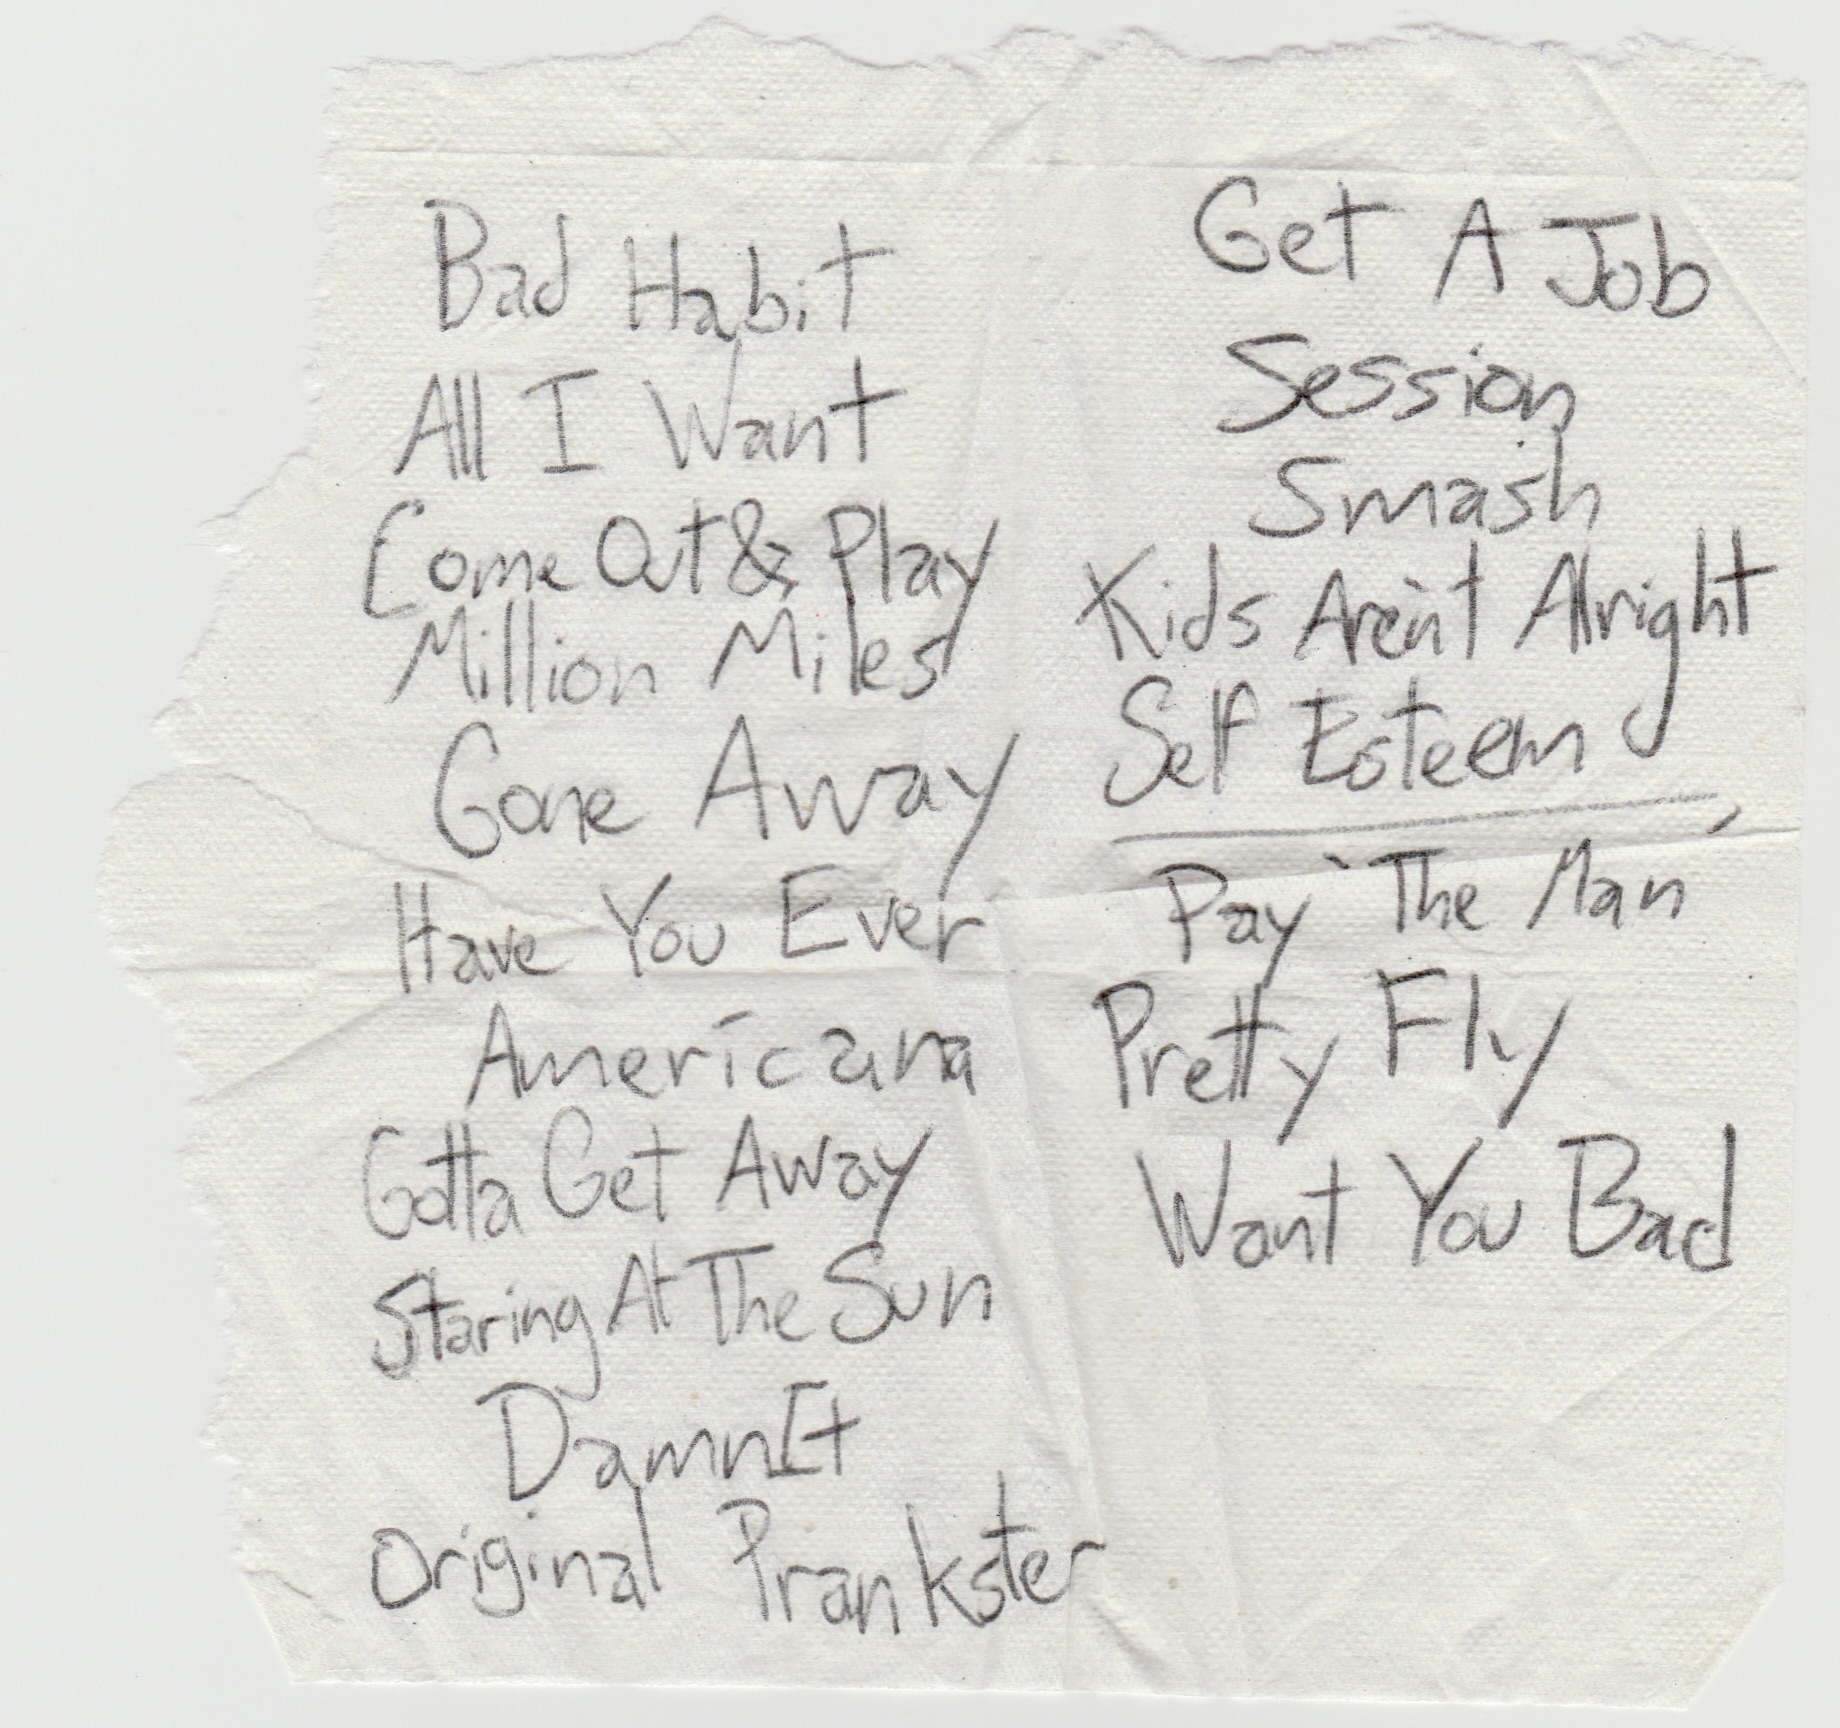 Bad Habit
All I Want
Come Out & Play
Million Miles
Gone Away
Have You Ever
Americana
Gotta Get Away
Staring At The Sun
DamnIt
Original Prankster
Get A Job
Session
Smash
Kids Aren't Alright
Self Esteem
Pay 'The Man'
Pretty Fly
Want You Bad